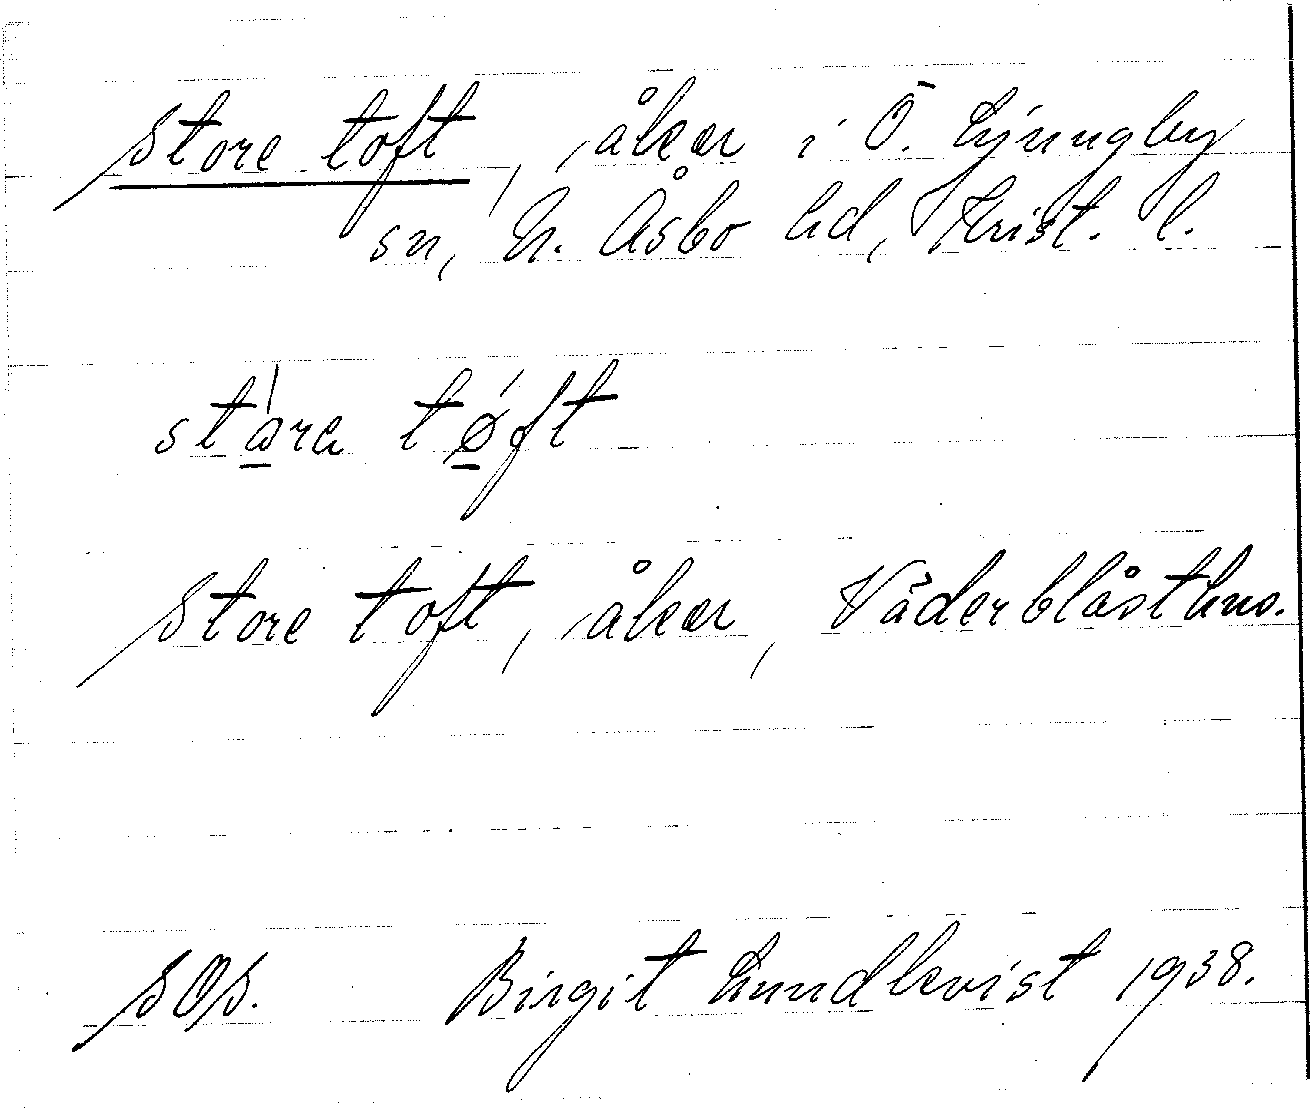 Store toft, åker i Ö. Ljungby
sn, N. Åsbo hd, Krist. l.
stara tøft
Store toft, åker, Väderblåsthus.
SOS. Birgit Lundkvist 1938.